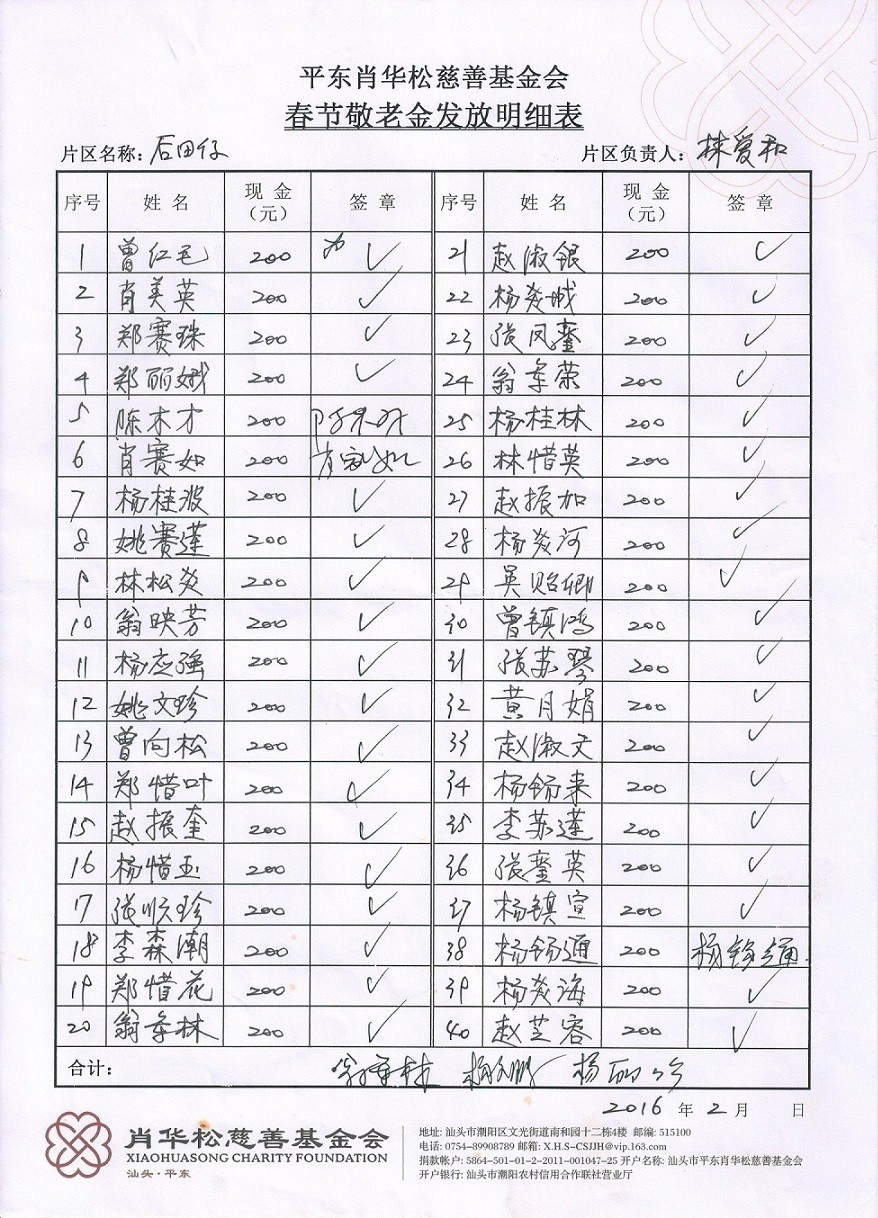 平东肖华松慈善基金会
春节敬老金发放明细表
片区名称：后田仔 片区负责人：林爱和
序号 姓名 现金（元） 签章 序号 姓名 现金（元） 签章
1 曾红毛 200 ✓ 21 赵淑银 200 ✓
2 肖美英 200 ✓ 22 杨炎城 200 ✓
3 郑赛珠 200 ✓ 23 张凤銮 200 ✓
4 郑丽娥 200 ✓ 24 翁奉荣 200 ✓
5 陈木才 200 25 杨桂林 200 ✓
6 肖赛如 200 肖赛如 26 林惜英 200 ✓
7 杨桂波 200 ✓ 27 赵振加 200 ✓
8 姚赛莲 200 ✓ 28 杨炎河 200 ✓
9 林松炎 200 ✓ 29 吴贻卿 200 ✓
10 翁映芳 200 ✓ 30 曾镇鸿 200 ✓
11 杨应强 200 ✓ 31 张苏琴 200 ✓
12 姚文珍 200 ✓ 32 黄月娟 200 ✓
13 曾向松 200 ✓ 33 赵淑文 200 ✓
14 郑惜叶 200 ✓ 34 杨钖来 200 ✓
15 赵振奎 200 ✓ 35 李苏莲 200 ✓
16 杨惜玉 200 ✓ 36 张銮英 200 ✓
17 张顺珍 200 ✓ 37 杨镇宣 200 ✓
18 李森潮 200 ✓ 38 杨钖通 200 杨钖通
19 郑惜花 200 ✓ 39 杨炎海 200 ✓
20 翁奉林 200 ✓ 40 赵芝容 200 ✓
合计： 翁奉林 杨文鹏 杨丽珍
2016 年 2 月 日
肖华松慈善基金会
XIAOHUASONG CHARITY FOUNDATION
汕头·平东
地址: 汕头市潮阳区文光街道南和园十二栋4楼 邮编: 515100
电话: 0754-89908789 邮箱: X.H.S-CSJJH@vip.163.com
捐款帐户: 5864-501-01-2-2011-001047-25 开户名称: 汕头市平东肖华松慈善基金会
开户银行: 汕头市潮阳农村信用合作联社营业厅